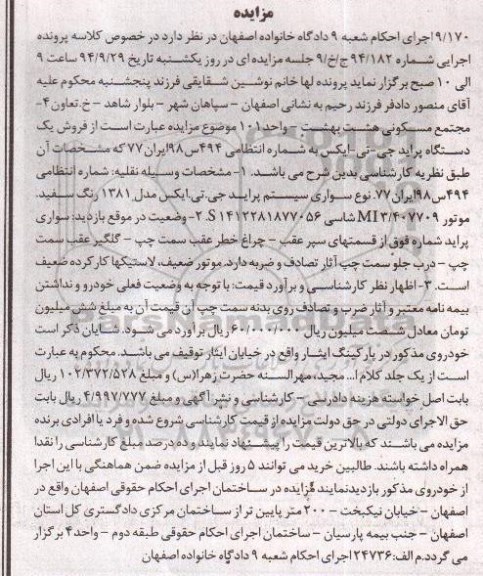 مزایده
۹/۱۷۰ اجرای احکام شعبه ۹ دادگاه خانواده اصفهان در نظر دارد در خصوص کلاسه پرونده
اجرایی شماره ۹۴/۱۸۲ ج/خ/۹ جلسه مزایده ای در روز یکشنبه تاریخ ۹۴/۹/۲۹ ساعت ۹
الی ۱۰ صبح برگزار نماید پرونده لها خانم نوشین شقایقی فرزند پنجشنبه محکوم علیه
آقای منصور دادفر فرزند رحیم به نشانی اصفهان - سپاهان شهر - بلوار شاهد - خ.تعاون ۴-
مجتمع مسکونی هشت بهشت - واحد ۱۰۱ موضوع مزایده عبارت است از فروش یک
دستگاه پراید جی-تی-ایکس به شماره انتظامی ۴۹۴س۹۸ایران۷۷ که مشخصات آن
طبق نظریه کارشناسی بدین شرح می باشد. ۱- مشخصات وسیله نقلیه: شماره انتظامی
۴۹۴س۹۸ایران۷۷. نوع سواری سیستم پراید جی.تی.ایکس مدل ۱۳۸۱ رنگ سفید.
موتور MI۳/۴۰۷۷۰۹ شاسی S۱۴۱۲۲۸۱۸۷۷۰۵۶. ۲- وضعیت در موقع بازدید: سواری
پراید شماره فوق از قسمتهای سپر عقب - چراغ خطر عقب سمت چپ - گلگیر عقب سمت
چپ - درب جلو سمت چپ آثار تصادف و ضربه دارد. موتور ضعیف، لاستیکها کارکرده ضعیف
است. ۳- اظهار نظر کارشناسی و برآورد قیمت: با توجه به وضعیت فعلی خودرو و نداشتن
بیمه نامه معتبر و آثار ضرب و تصادف روی بدنه سمت چپ آن قیمت آن به مبلغ شش میلیون
تومان معادل شصت میلیون ریال ۶۰/۰۰۰/۰۰۰ ریال برآورد می شود. شایان ذکر است
خودروی مذکور در پارکینگ ایثار واقع در خیابان ایثار توقیف می باشد. محکوم به عبارت
است از یک جلد کلام ا... مجید، مهرالسنه حضرت زهرا(س) و مبلغ ۱۰۲/۳۷۲/۵۲۸ ریال
بابت اصل خواسته هزینه دادرسی - کارشناسی و نشر آگهی و مبلغ ۴/۹۹۷/۷۷۷ ریال بابت
حق الاجرای دولتی در حق دولت مزایده از قیمت کارشناسی شروع شده و فرد یا افرادی برنده
مزایده می باشند که بالاترین قیمت را پیشنهاد نمایند و ده درصد مبلغ کارشناسی را نقدا
همراه داشته باشند. طالبین خرید می توانند ۵ روز قبل از مزایده ضمن هماهنگی با این اجرا
از خودروی مذکور بازدید نمایند مزایده در ساختمان اجرای احکام حقوقی اصفهان واقع در
اصفهان - خیابان نیکبخت - ۲۰۰ متر پایین تر از ساختمان مرکزی دادگستری کل استان
اصفهان - جنب بیمه پارسیان - ساختمان اجرای احکام حقوقی طبقه دوم - واحد ۴ برگزار
می گردد.م الف:۲۴۷۳۶ اجرای احکام شعبه ۹ دادگاه خانواده اصفهان